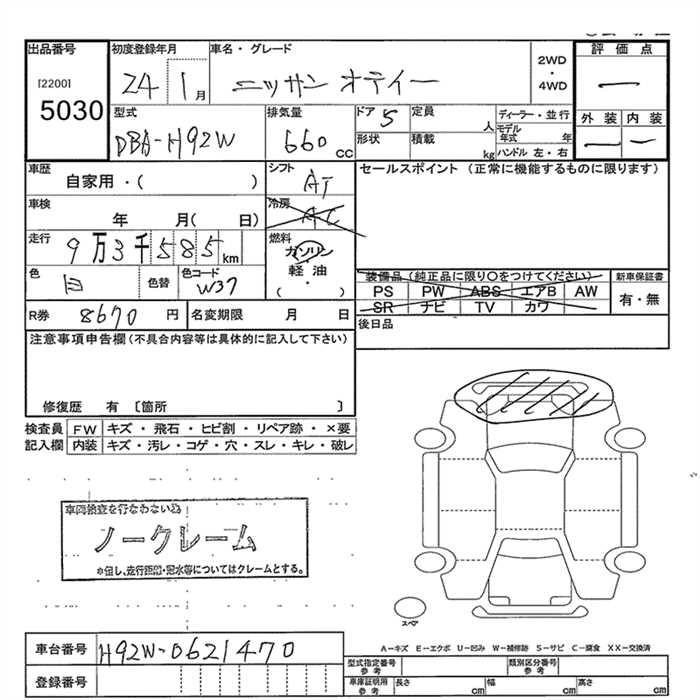 出品番号 初度登録年月 車名・グレード 2WD・4WD 評価点
[2200]
5030
24 1月 ニッサン オティー
型式 排気量 ドア 定員 ディーラー・並行 外装 内装
DBA-H92W 660 CC 5 人 モデル年式 年
形状 積載 kg ハンドル 左・右
車歴 シフト セールスポイント (正常に機能するものに限ります)
自家用・( ) AT
車検 冷房
年 月( 日) AC
走行 燃料
9万3千585km ガソリン
軽油
( ・ )
色 色替 色コード 装備品 (純正品に限り○をつけてください) 新車保証書
白 W37 PS PW ABS エアB AW 有・無
SR ナビ TV カワ
R券 8670 円 名変期限 月 日 後日品
注意事項申告欄 (不具合内容等は具体的に記入して下さい)
修復歴 有 〔箇所 〕
検査員 FW キズ・飛石・ヒビ割・リペア跡・×要
記入欄 内装 キズ・汚レ・コゲ・穴・スレ・キレ・破レ
車両検査を行なわない為
ノークレーム
※但し、走行距離・冠水等についてはクレームとする。
スペア
A-キズ E-エクボ U-凹み W-補修跡 S-サビ C-腐食 XX-交換済
車台番号 H92W-0621470
型式指定番号 参考 類別区分番号 参考
登録番号 車庫証明用 参考 長さ cm 幅 cm 高さ cm